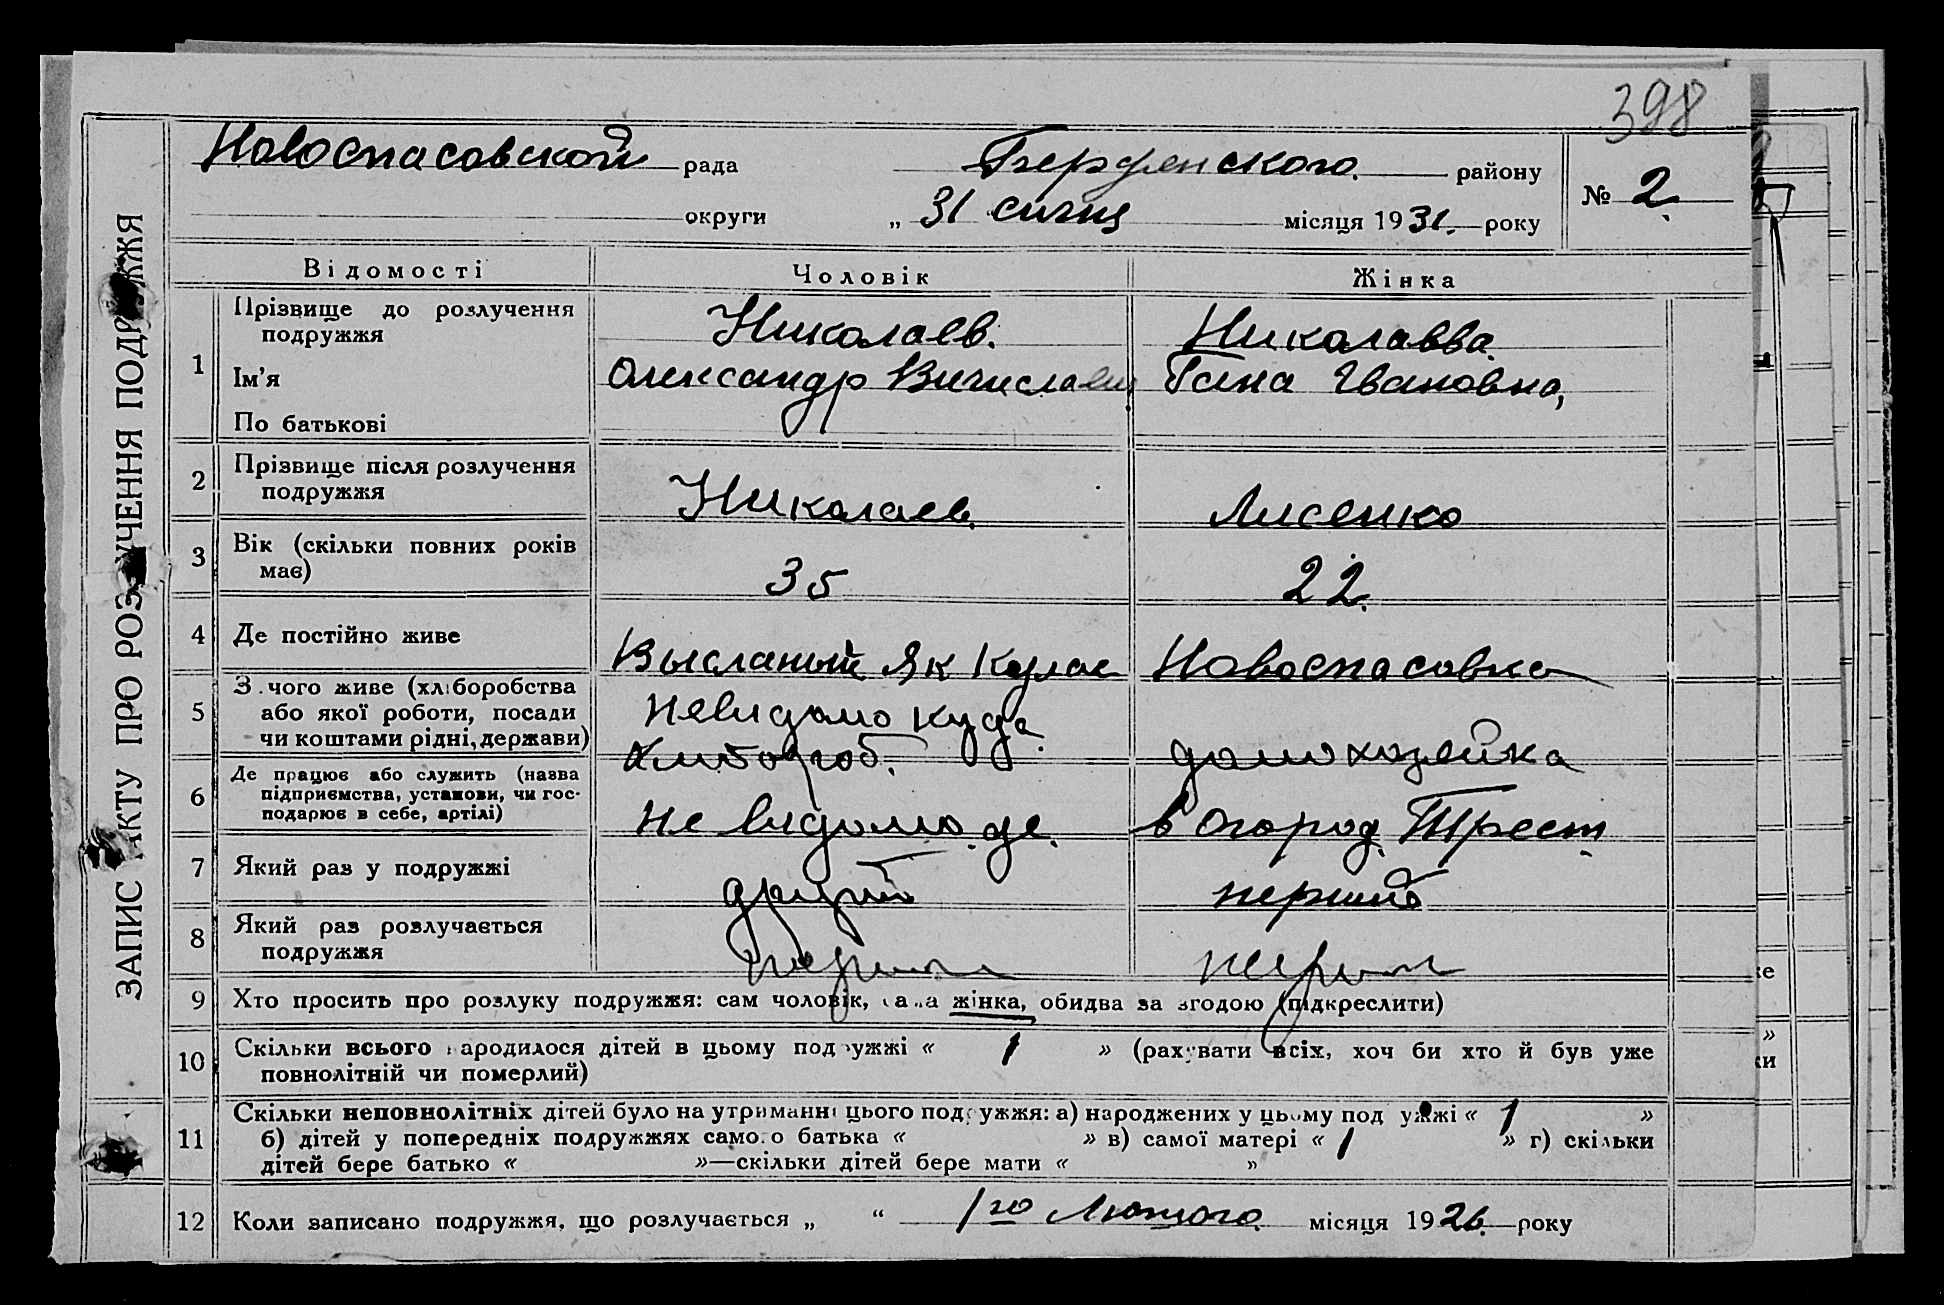 398
Новоспасовской рада Бердянского району № 2.
округи „ 31 січня місяця 1931. року
ЗАПИС АКТУ ПРО РОЗЛУЧЕННЯ ПОДРУЖЖЯ
Відомості Чоловік Жінка
1 Прізвище до розлучення подружжя Николаев. Николаевва
Ім'я Олександр Вичислави Ганна Івановна,
По батькові
2 Прізвище після розлучення
подружжя Николаев. Лисенко
3 Вік (скільки повних років
має) 35 22.
4 Де постійно живе Высланый як кулак Новоспасовка
5 З чого живе (хліборобства
або якої роботи, посади невидомо куда
чи коштами рідні, держави) Хлибороб. домохозяйка
6 Де працює або служить (назва
підприємства, установи, чи гос-
подарює в себе, артілі) не видомо де. в огород. Трест.
7 Який раз у подружжі другий перший
8 Який раз розлучається
подружжя
9 Хто просить про розлуку подружжя: сам чоловік, сама жінка, обидва за згодою (підкреслити)
10 Скільки всього народилося дітей в цьому подружжі « 1 » (рахувати всіх, хоч би хто й був уже
повнолітній чи померлий)
11 Скільки неповнолітніх дітей було на утриманні цього подружжя: а) народжених у цьому подружжі « 1 »
б) дітей у попередніх подружжях самого батька « » в) самої матері « 1 » г) скільки
дітей бере батько « »—скільки дітей бере мати « »
12 Коли записано подружжя, що розлучається „ “ 1го Лютого місяця 1926. року